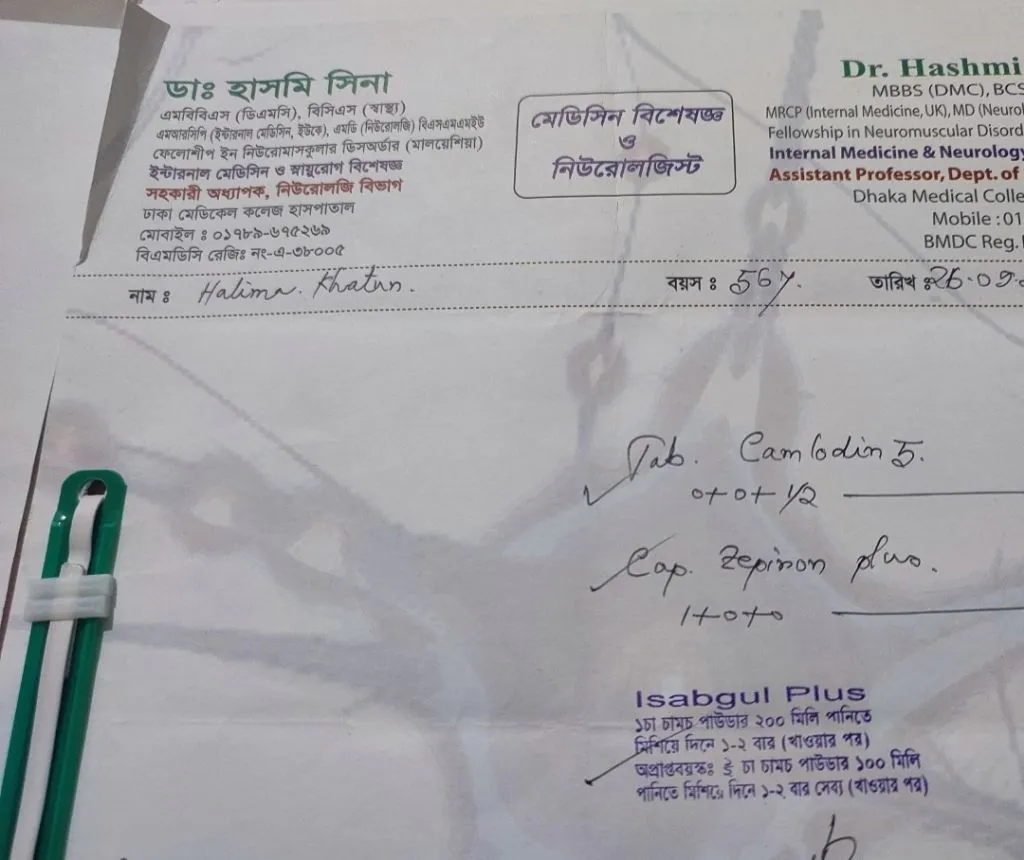 ডাঃ হাসমি সিনা
এমবিবিএস (ডিএমসি), বিসিএস (স্বাস্থ্য)
এমআরসিপি (ইন্টারনাল মেডিসিন, ইউকে), এমডি (নিউরোলজি) বিএসএমএমইউ
ফেলোশীপ ইন নিউরোমাসকুলার ডিসঅর্ডার (মালয়েশিয়া)
ইন্টারনাল মেডিসিন ও স্নায়ুরোগ বিশেষজ্ঞ
সহকারী অধ্যাপক, নিউরোলজি বিভাগ
ঢাকা মেডিকেল কলেজ হাসপাতাল
মোবাইল ঃ ০১৭৮৯-৬৭৫২৬৯
বিএমডিসি রেজিঃ নং-এ-৩৮০০৫
মেডিসিন বিশেষজ্ঞ
ও
নিউরোলজিস্ট
Dr. Hashmi
MBBS (DMC), BCS
MRCP (Internal Medicine, UK), MD (Neurol
Fellowship in Neuromuscular Disord
Internal Medicine & Neurology
Assistant Professor, Dept. of
Dhaka Medical Colle
Mobile : 01
BMDC Reg.
নাম ঃ Halima Khatun. বয়স ঃ 56y. তারিখ ঃ 26.09.
Tab. Camlodin 5.
0+0+1/2
Cap. Zepinon plus.
1+0+0
Isabgul Plus
১টা চামচ পাউডার ২০০ মিলি পানিতে
মিশিয়ে দিনে ১-২ বার (খাওয়ার পর)
অপ্রাপ্তবয়স্কঃ ই চা চামচ পাউডার ১০০ মিলি
পানিতে মিশিয়ে দিনে ১-২ বার সেব্য (খাওয়ার পর)